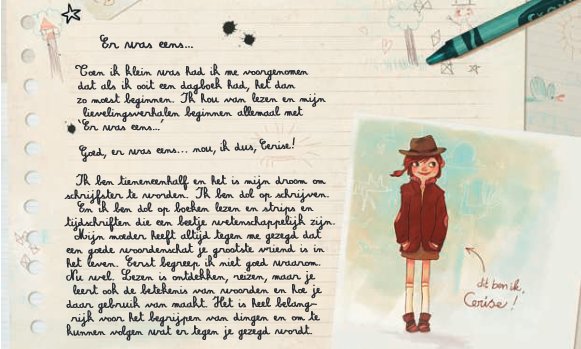 Er was eens...
Toen ik klein was had ik me voorgenomen
dat als ik ooit een dagboek had, het dan
zo moest beginnen. Ik hou van lezen en mijn
lievelingsverhalen beginnen allemaal met
'Er was eens...'
Goed, er was eens... nou, ik dus, Cerise!
Ik ben tieneneenhalf en het is mijn droom om
schrijfster te worden. Ik ben dol op schrijven.
En ik ben dol op boeken lezen en strips en
tijdschriften die een beetje wetenschappelijk zijn.
Mijn moeder heeft altijd tegen me gezegd dat
een goede woordenschat je grootste vriend is in
het leven. Eerst begreep ik niet goed waarom.
Nu wel. Lezen is ontdekken, reizen, maar je
leert ook de betekenis van woorden en hoe je
daar gebruik van maakt. Het is heel belang-
rijk voor het begrijpen van dingen en om te
kunnen volgen wat er tegen je gezegd wordt.
dit ben ik,
Cerise!